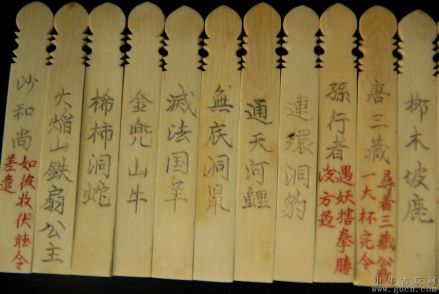 柳木坡鹿
唐三藏
尋着三藏公賀
一大杯完令
孫行者
遇妖搳拳勝
次方過
連環洞豹
通天河鯉
無底洞鼠
滅法国羊
金兜山牛
稀柿洞蛇
火焰山鉄扇公主
沙和尚
如彼收伏聴令
差遣
中华古玩网
www.gucn.com